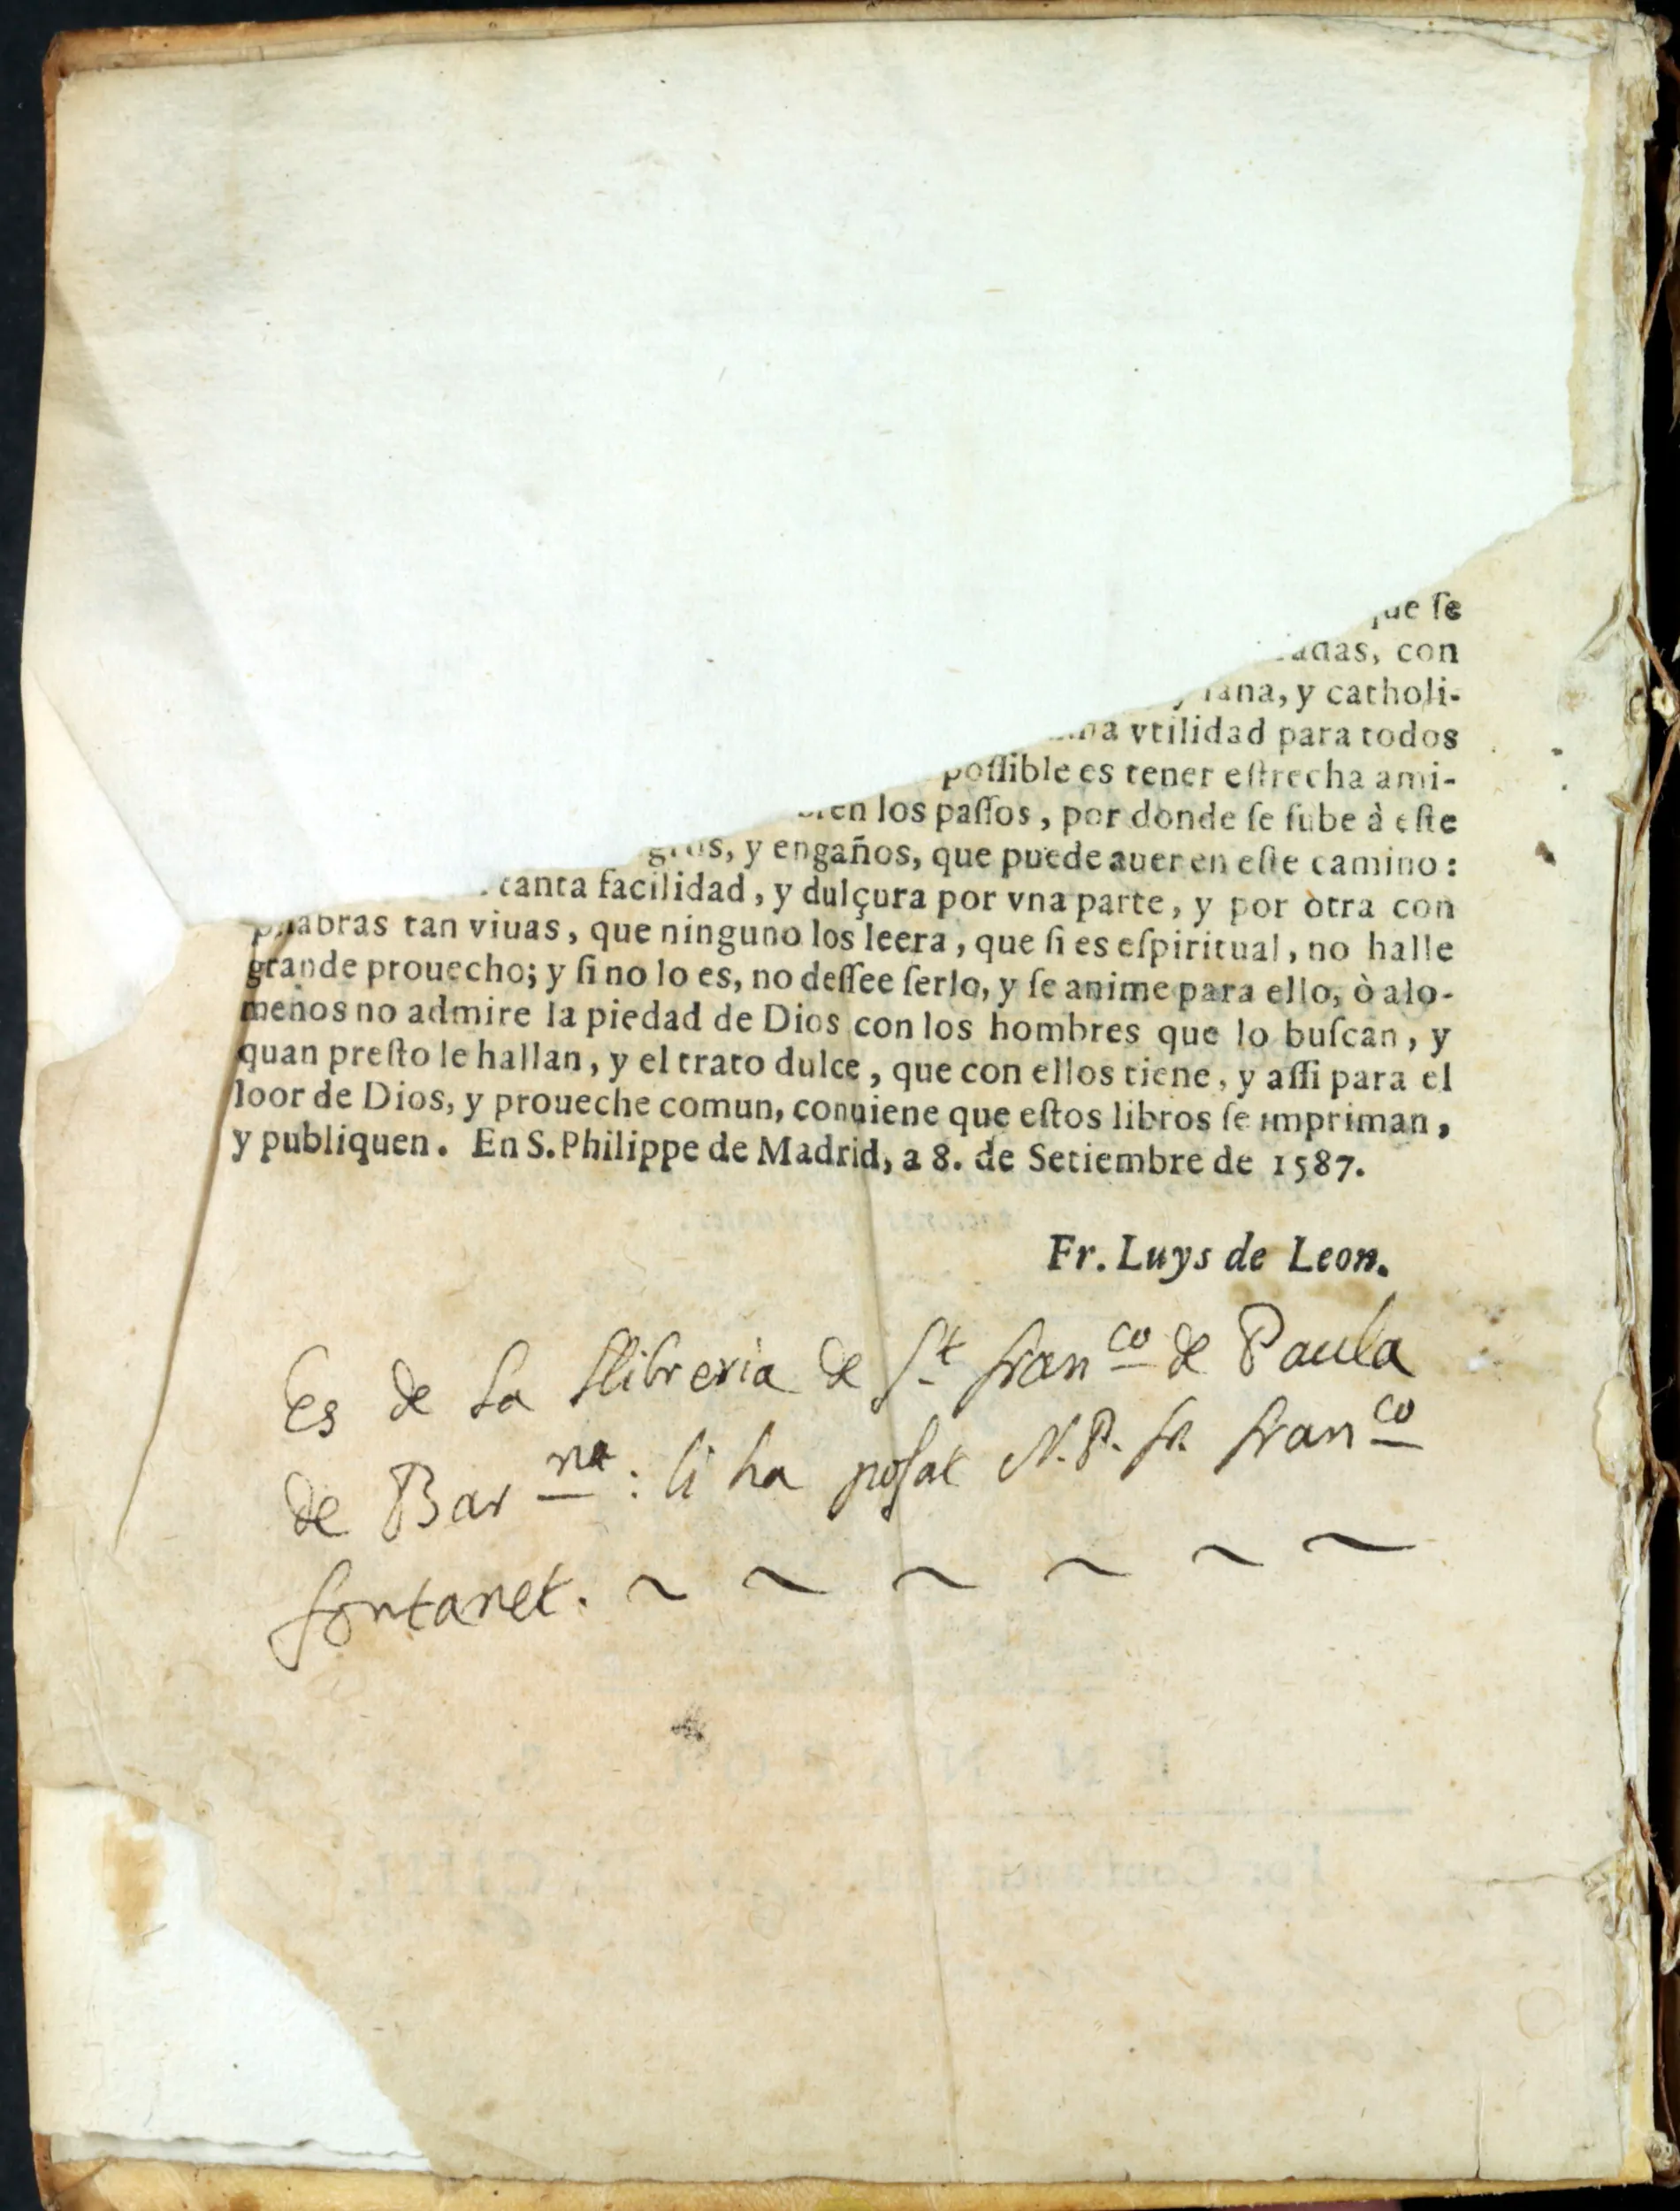 que ſe
adas, con
ſana, y catholi-
vtilidad para todos
poſſible es tener eſtrecha ami-
los paſſos, por donde ſe ſube à eſte
gros, y engaños, que puede auer en eſte camino:
tanta facilidad, y dulçura por vna parte, y por òtra con
palabras tan viuas, que ninguno los leera, que ſi es eſpiritual, no halle
grande prouecho; y ſi no lo es, no deſſee ſerlo, y ſe anime para ello, ò alo-
menos no admire la piedad de Dios con los hombres que lo buſcan, y
quan preſto le hallan, y el trato dulce, que con ellos tiene, y aſſi para el
loor de Dios, y proueche comun, conuiene que eſtos libros ſe impriman,
y publiquen. En S. Philippe de Madrid, a 8. de Setiembre de 1587.
Fr. Luys de Leon.
Es de la llibreria de St fran.co de Paula
de Bar.na: li ha poſat N. P. fr. fran.co
fontanet. ~ ~ ~ ~ ~ ~